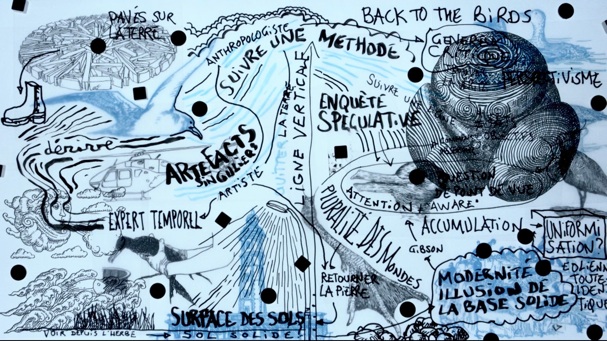 PAVÉS SUR
LA TERRE
BACK TO THE BIRDS
ANTHROPOLOGISTE
SUIVRE UNE METHODE
PERSPECTIVISME
SUIVRE UNE
LA TERRE
LIGNE VERTICALE
ENQUÊTE
SPECULATIVE
dérive
ARTEFACTS
SINGULIERS
ARTISTE
POINT DE VUE
ATTENTION
"AWARE"
EXPERT TEMPOREL
PLURALITÉ DES MONDES
ACCUMULATION
UNIFORMI
SATION?
GIBSON
RETOURNER
LA PIERRE
MODERNITÉ
ILLUSION DE
LA BASE SOLIDE
ÉOLIENNE
TOUTE
IDEN
TIQUE
SURFACE DES SOLS
SOL SOLIDE
VOIR DEPUIS L'HERBE